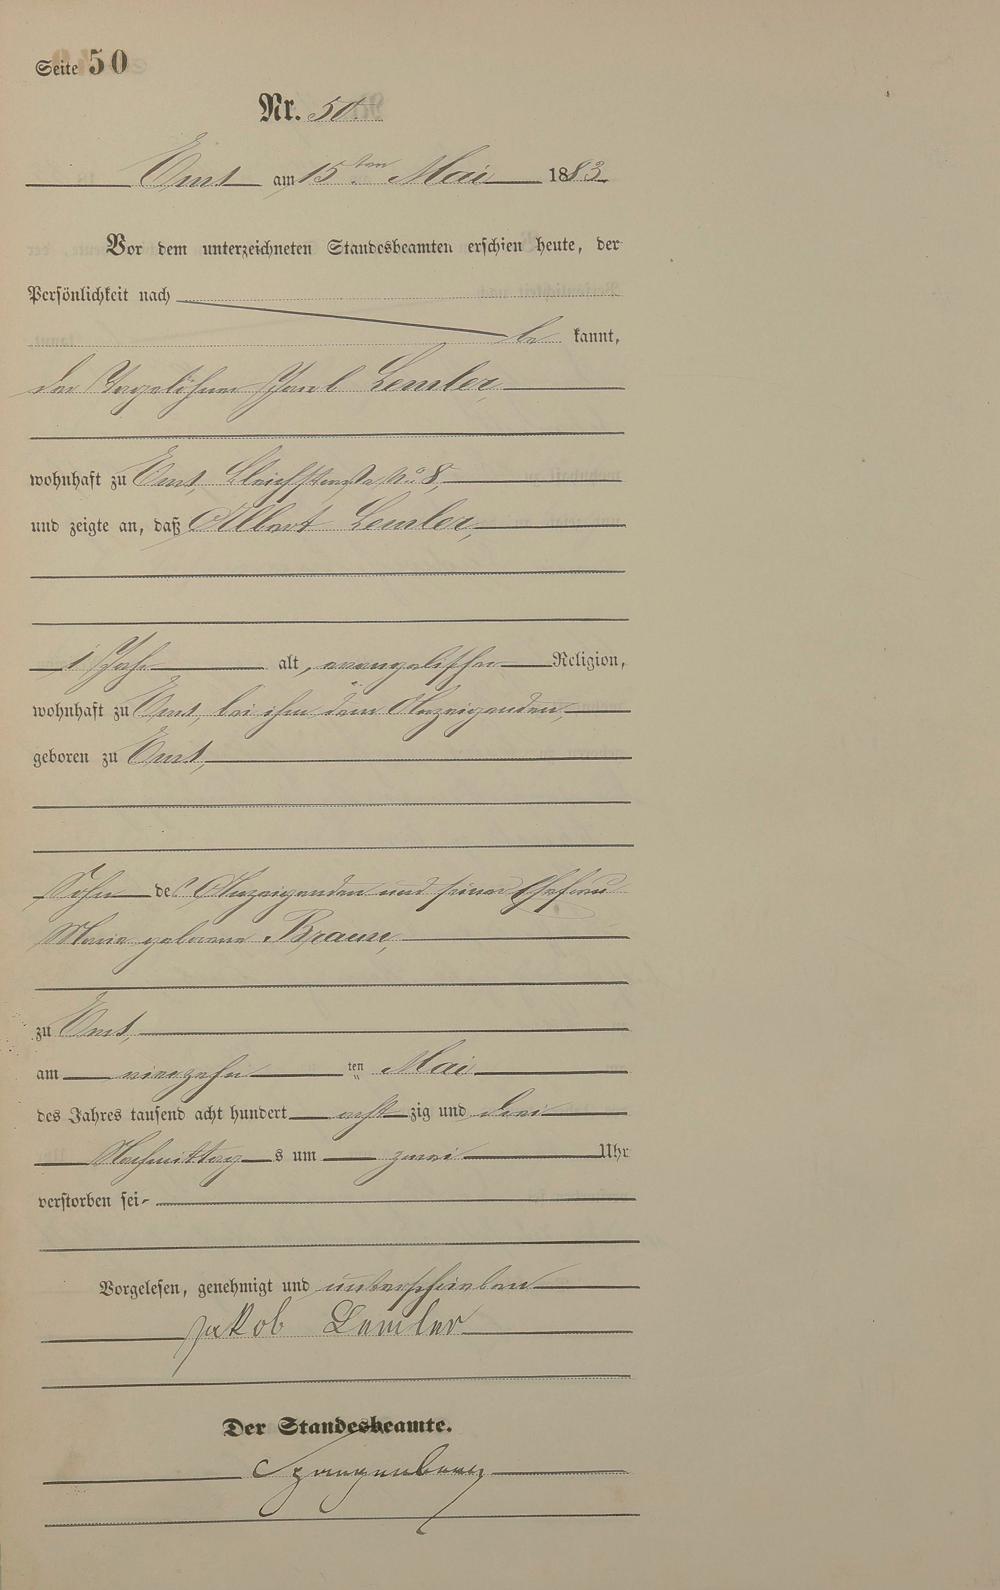 Seite 50
Nr. 50.
Ems am 15ten Mai 1883.
Vor dem unterzeichneten Standesbeamten erschien heute, der
Persönlichkeit nach
be kannt,
der Tagelöhner Jacob Lemler,
wohnhaft zu Ems, Bleichstraße No 8,
und zeigte an, daß Albert Lemler,
1 Jahr alt, evangelischer Religion,
wohnhaft zu Ems, bei ihm dem Anzeigenden,
geboren zu Ems,
Sohn des Anzeigenden und seiner Ehefrau
Marie geborene Braun,
zu Ems,
am vierzehn ten Mai
des Jahres tausend acht hundert acht zig und drei
Nachmittag s um zwei Uhr
verstorben sei.
Vorgelesen, genehmigt und unterschrieben
Jakob Lemler
Der Standesbeamte.
Spangenberg